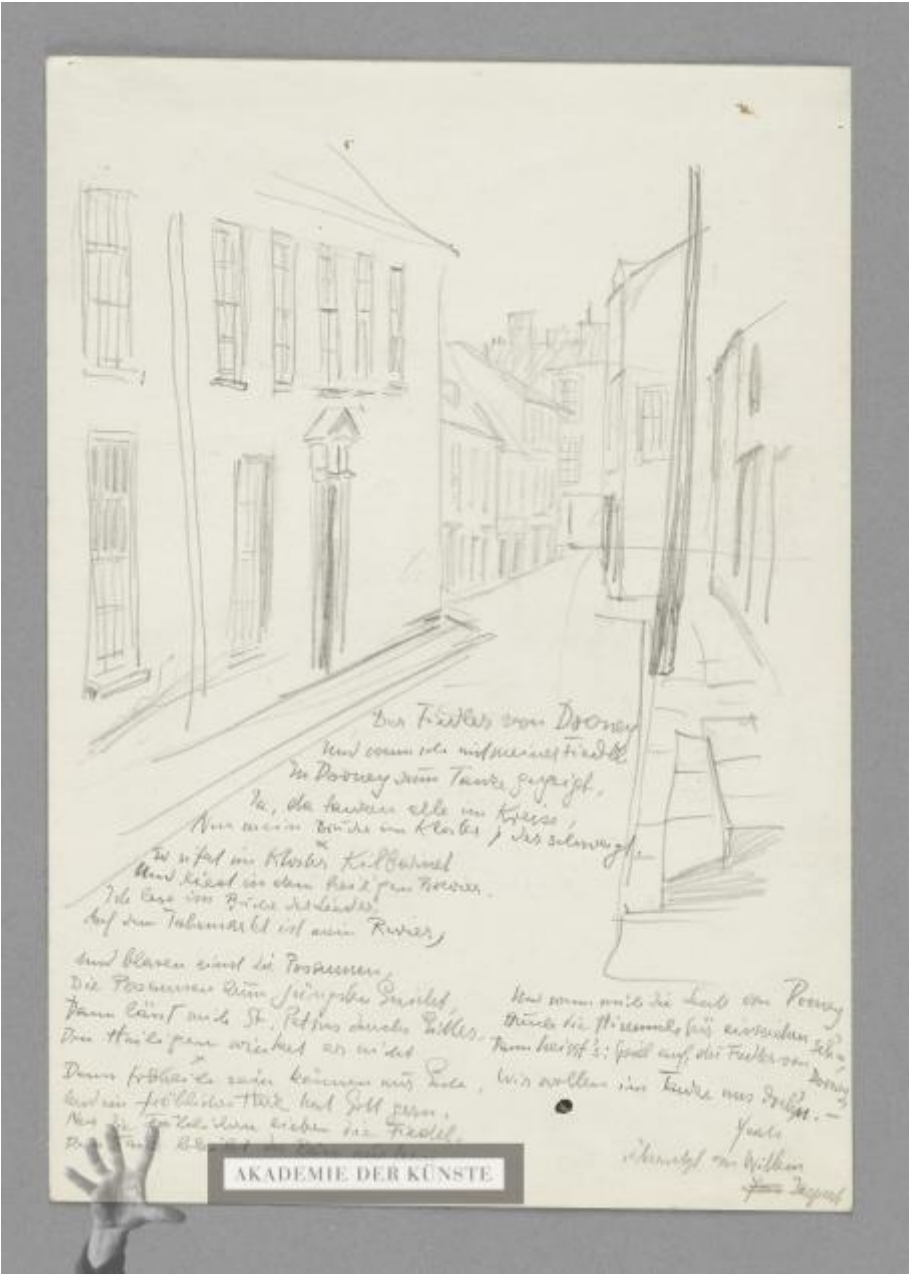 Der Fiedler von Dooney
Und wenn ich mit meiner Fiedel
In Dooney zum Tanze gegeigt,
Ja, da tanzen alle im Kreise,
Nur mein Bruder im Kloster, der schweigt.
Er sitzt im Kloster Kilbarnet
Und liest in dem heil'gen Brevier.
Ich lese im Buche der Lieder,
Auf dem Jahrmarkt ist mein Revier,
Und blasen einst die Posaunen,
Die Posaunen zum jüngsten Gericht,
Dann lässt mich St. Petrus durchs Gitter,
Den Heiligen winket er nicht
Denn fröhlich sein können nur Gute,
und ein fröhliches Herz hat Gott gern.
Nur die Fröhlichen lieben die Fiedel,
Und wenn mich die Leut von Dooney
Durch die Himmelstür einziehen sehn,
Dann heisst's: Spiel auf, du Fiedler von Dooney
Wir wollen im Tanze uns drehn. —
Yeats
übersetzt von Willem
AKADEMIE DER KÜNSTE